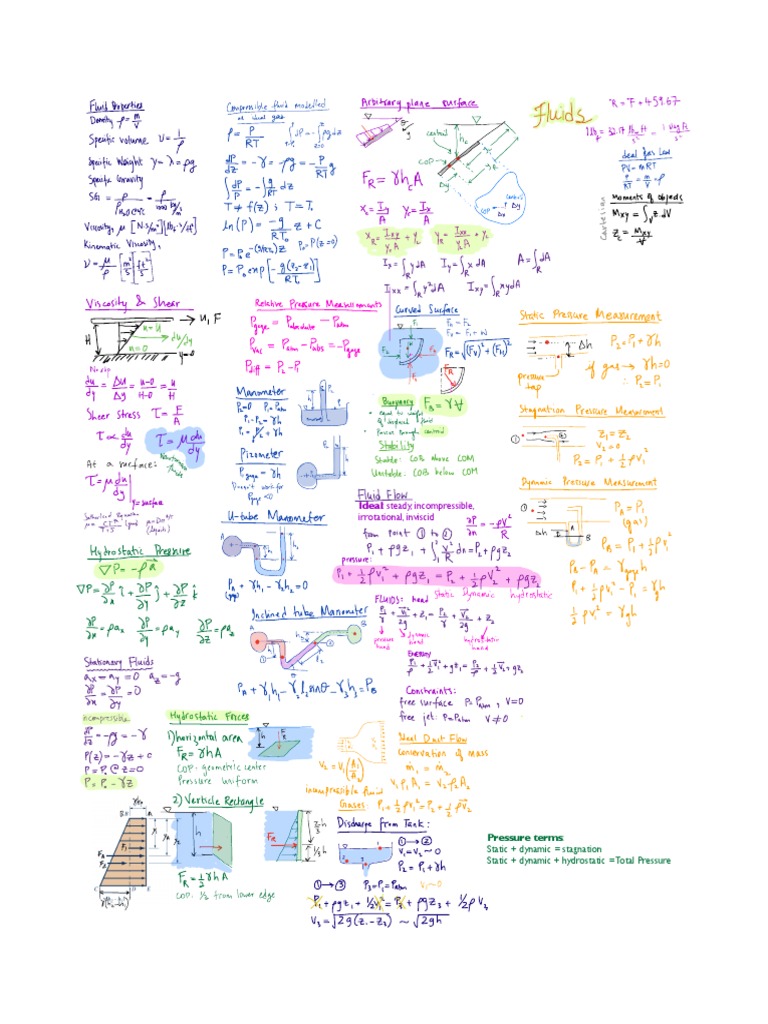 Fluid Properties
Density ρ = m/V
Specific volume v = 1/ρ
Specific Weight γ = λ = ρg
Specific Gravity
SG = ρ/ρH₂O@4°C = ρ/1000 kg/m³
Viscosity, μ [N·s/m²][lb·s/ft²]
Kinematic Viscosity,
ν = μ/ρ [m²/s] [ft²/s]
Compressible fluid modelled
as ideal gas
ρ = P/RT
dP/dz = -γ = -ρg = -P/RT g
∫dP/P = -∫ g/RT dz
T ≠ f(z) ; T = T₀
ln(P) = -g/RT₀ z + C
P = P₀e^-(g/RT₀)z P₀ = P(z=0)
P = P₀ exp[-g(z₂-z₁)/RT₀]
Arbitrary plane surface
centroid
COP
F_R = γh_cA
x_c = I_y/A y_c = I_x/A
x_R = I_xy/y_cA + x_c
y_R = I_xx/y_cA + y_c
I_x = ∫_R y dA I_y = ∫_R x dA A = ∫_R dA
I_xx = ∫_R y² dA I_xy = ∫_R xy dA
Fluids
°R = °F + 459.67
Ideal Gas Law
PV = mRT
P/RT = m/V = ρ
Cartesian
Moments of objects
Mxy = ∫_V z dV
z_c = Mxy/V
Viscosity & Shear
u, F
H
du/dy
u=0
y=0
No slip
du/dy = Δu/Δy = u-0/H-0 = u/H
Shear Stress τ = F/A
τ ∝ du/dy
τ = μ du/dy
Newtonian fluids
At a surface:
τ = μ du/dy | y=surface
Relative Pressure Measurements
P_gage = P_absolute - P_atm
P_vac = P_atm - P_abs = -P_gage
P_diff = P₂ - P₁
Manometer
P₂=0 P₁=P_atm
P₁ - P₂ = γh
Pizometer
P_gage = γh
Doesn't work for
P_gage < 0
U-tube Manometer
P_A + γh₁ - γ₂h₂ = 0
(gage)
Inclined tube Manometer
P_A + γ₁h₁ - γ₂l₂ sinθ - γ₃h₃ = P_B
Curved Surface
F_R = √(F_V)² + (F_H)²
Buoyancy
F_B = γV
• equal to weight of displaced fluid
• Passes through centroid
Stability
Stable: COB above COM
Unstable: COB below COM
Static Pressure Measurement
Δh
pressure tap
P₂ = P₁ + γh
if gas → γh = 0
∴ P₂ = P₁
Stagnation Pressure Measurment
z₁ = z₂
V₂ = 0
P₂ = P₁ + ½ρV₁²
Dynamic Pressure Measurement
(gas)
½ρV₁² = γ_g h
Hydrostatic Pressure
∇P = -ρa
∇P = ∂P/∂x î + ∂P/∂y ĵ + ∂P/∂z k̂
∂P/∂x = ρa_x ∂P/∂y = ρa_y ∂P/∂z = ρa_z
Stationary Fluids
a_x = a_y = 0 a_z = -g
∂P/∂x = ∂P/∂y = 0
incompressible
dP/dz = -ρg = -γ
P(z) = -γz + C
P = P₀ @ z = 0
P = P₀ - γz
Fluid Flow
Ideal steady, incompressible,
irrotational, inviscid
∂P/∂n = -ρV²/R
from point ① to ②
P₁ + ρgz₁ + ∫ρ V²/R dn = P₂ + ρgz₂
pressure:
P₁ + ½ρV₁² + ρgz₁ = P₂ + ½ρV₂² + ρgz₂
static dynamic hydrostatic
FLUIDS: head
P₁/γ + V₁²/2g + z₁ = P₂/γ + V₂²/2g + z₂
pressure head
dynamic head
hydrostatic head
Energy
P₁/ρ + ½V₁² + gz₁ = P₂/ρ + ½V₂² + gz₂
Constraints:
free surface P = P_atm, V=0
free jet: P = P_atm V≠0
Hydrostatic Forces
1) horizontal area
F_R = γhA
COP: geometric center
Pressure uniform
2) Verticle Rectangle
F_R = ½γhA
COP: ⅓ from lower edge
Ideal Duct Flow
conservation of mass
ṁ₁ = ṁ₂
V₂ = V₁(A₁/A₂)
V₁ρ₁A₁ = V₂ρ₂A₂
incompressible fluid
Gases: P₁ + ½ρV₁² = P₂ + ½ρV₂²
Discharge from Tank:
①→②
V₁ = V₂ ~ 0
P₂ = P₁ + γh
①→③ P₃ = P₁ = P_atm V₁~0
P₁ + ρgz₁ + ½V₁² = P₃ + ρgz₃ + ½ρV₃
V₃ = √2g(z₁-z₃) ~ √2gh
Pressure terms
Static + dynamic = stagnation
Static + dynamic + hydrostatic = Total Pressure